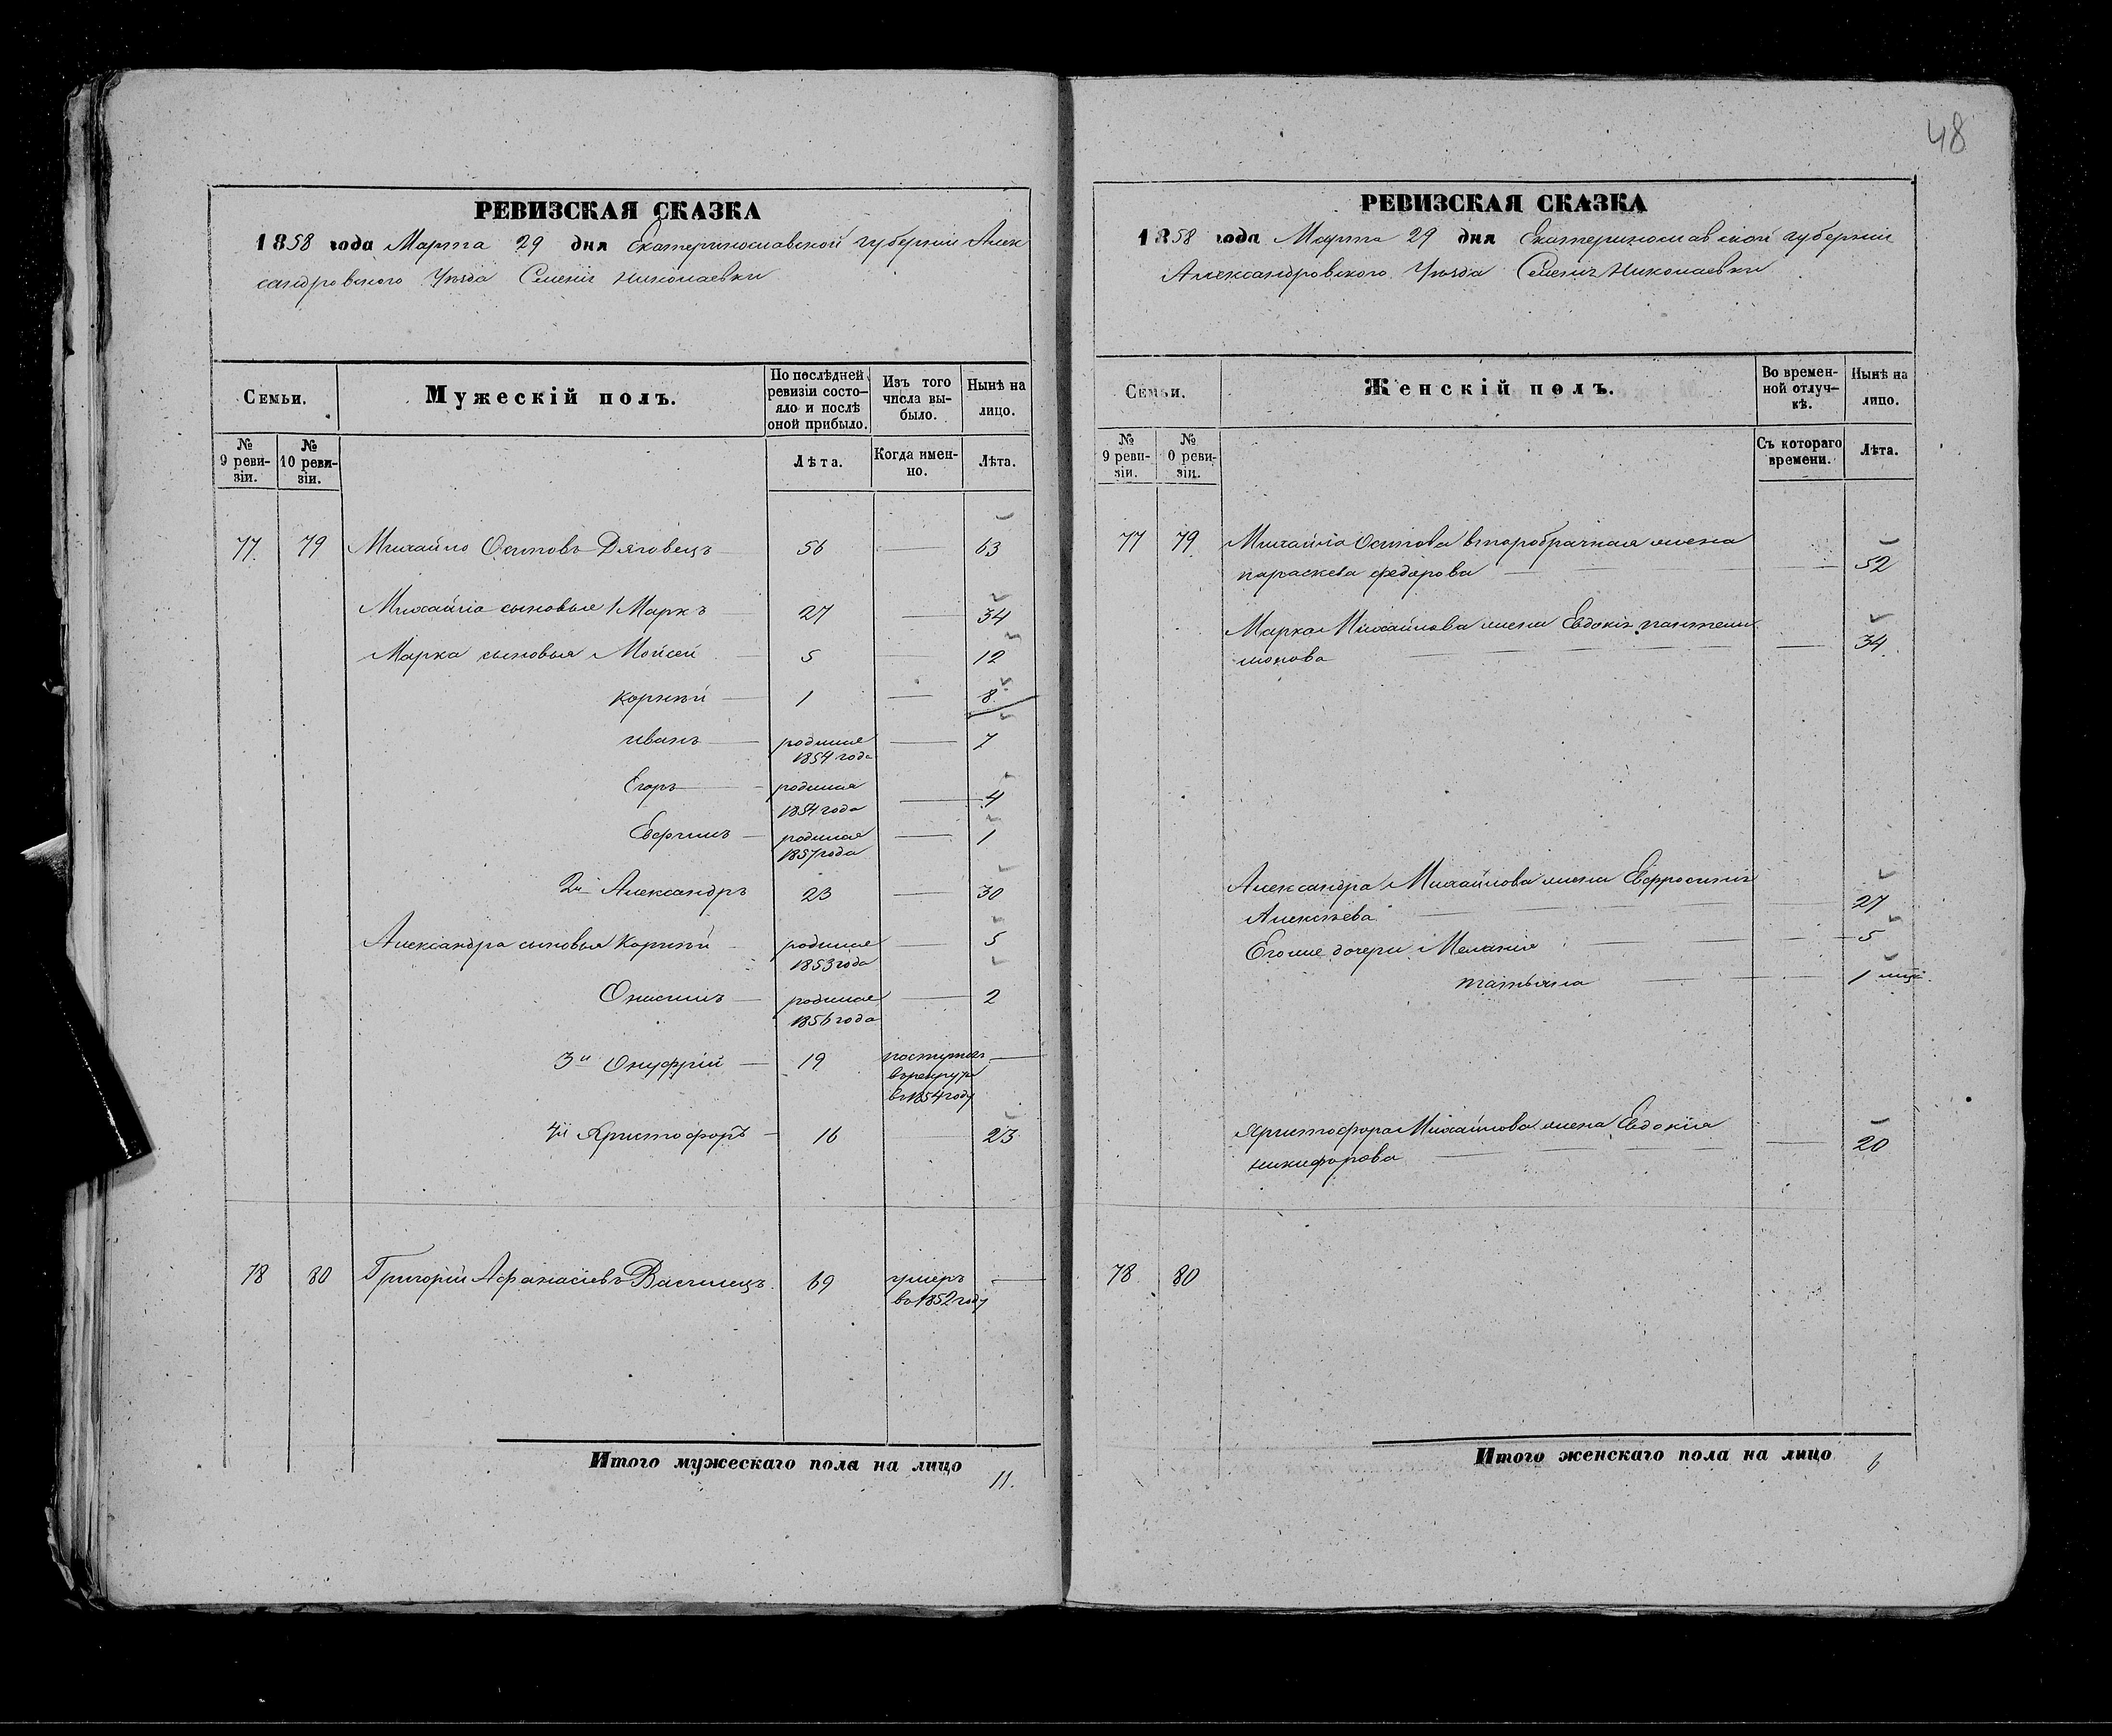 48
РЕВИЗСКАЯ СКАЗКА
1858 года Марта 29 дня Екатеринославской губернии Алек
сандровского Уѣзда Селенiя Николаевки
Семьи.
Мужескій полъ.
По послѣдней ревизіи состояло и послѣ оной прибыло.
Изъ того числа выбыло.
Нынѣ на лицо.
№ 9 ревизіи.
№ 10 ревизіи.
Лѣта.
Когда именно.
Лѣта.
77 79 Михайло Осиповъ Дяговецъ 56 — 63
Михайла сыновья 1 Маркъ 27 — 34
Марка сыновья Мойсей 5 — 12
Корнѣй 1 — 8
Иванъ родился — 7
1854 года
Егоръ родился
1854 года — 4
Евфимъ родился — 1
1857 года
2й Александръ 23 — 30
Александра сыновья Корнѣй родился — 5
1853 года
Онисимъ родился — 2
1856 года
3й Онуфрій 19 поступилъ —
въ рекруты
въ 1854 году
4й Христофоръ 16 — 23
78 80 Григорій Афанасіевъ Василецъ 69 умеръ —
въ 1852 году
Итого мужескаго пола на лицо
11.
РЕВИЗСКАЯ СКАЗКА
1858 года Марта 29 дня Екатеринославской губернии
Александровского Уѣзда Селенiя Николаевки
Семьи.
Женскій полъ.
Во временной отлучкѣ.
Нынѣ на лицо.
№ 9 ревизіи.
№ 0 ревизіи.
Съ котораго времени.
Лѣта.
77 79 Михайла Осипова второбрачная жена
параскева федорова — 52
Марка Михайлова жена Евдокія пантели
монова — 34
Александра Михайлова жена Евфросинія
Алексѣева 27
Его же дочери Меланія — 5
татьяна — 1
Христофора Михайлова жена Евдокія
никифорова — 20
78 80
Итого женскаго пола на лицо 6